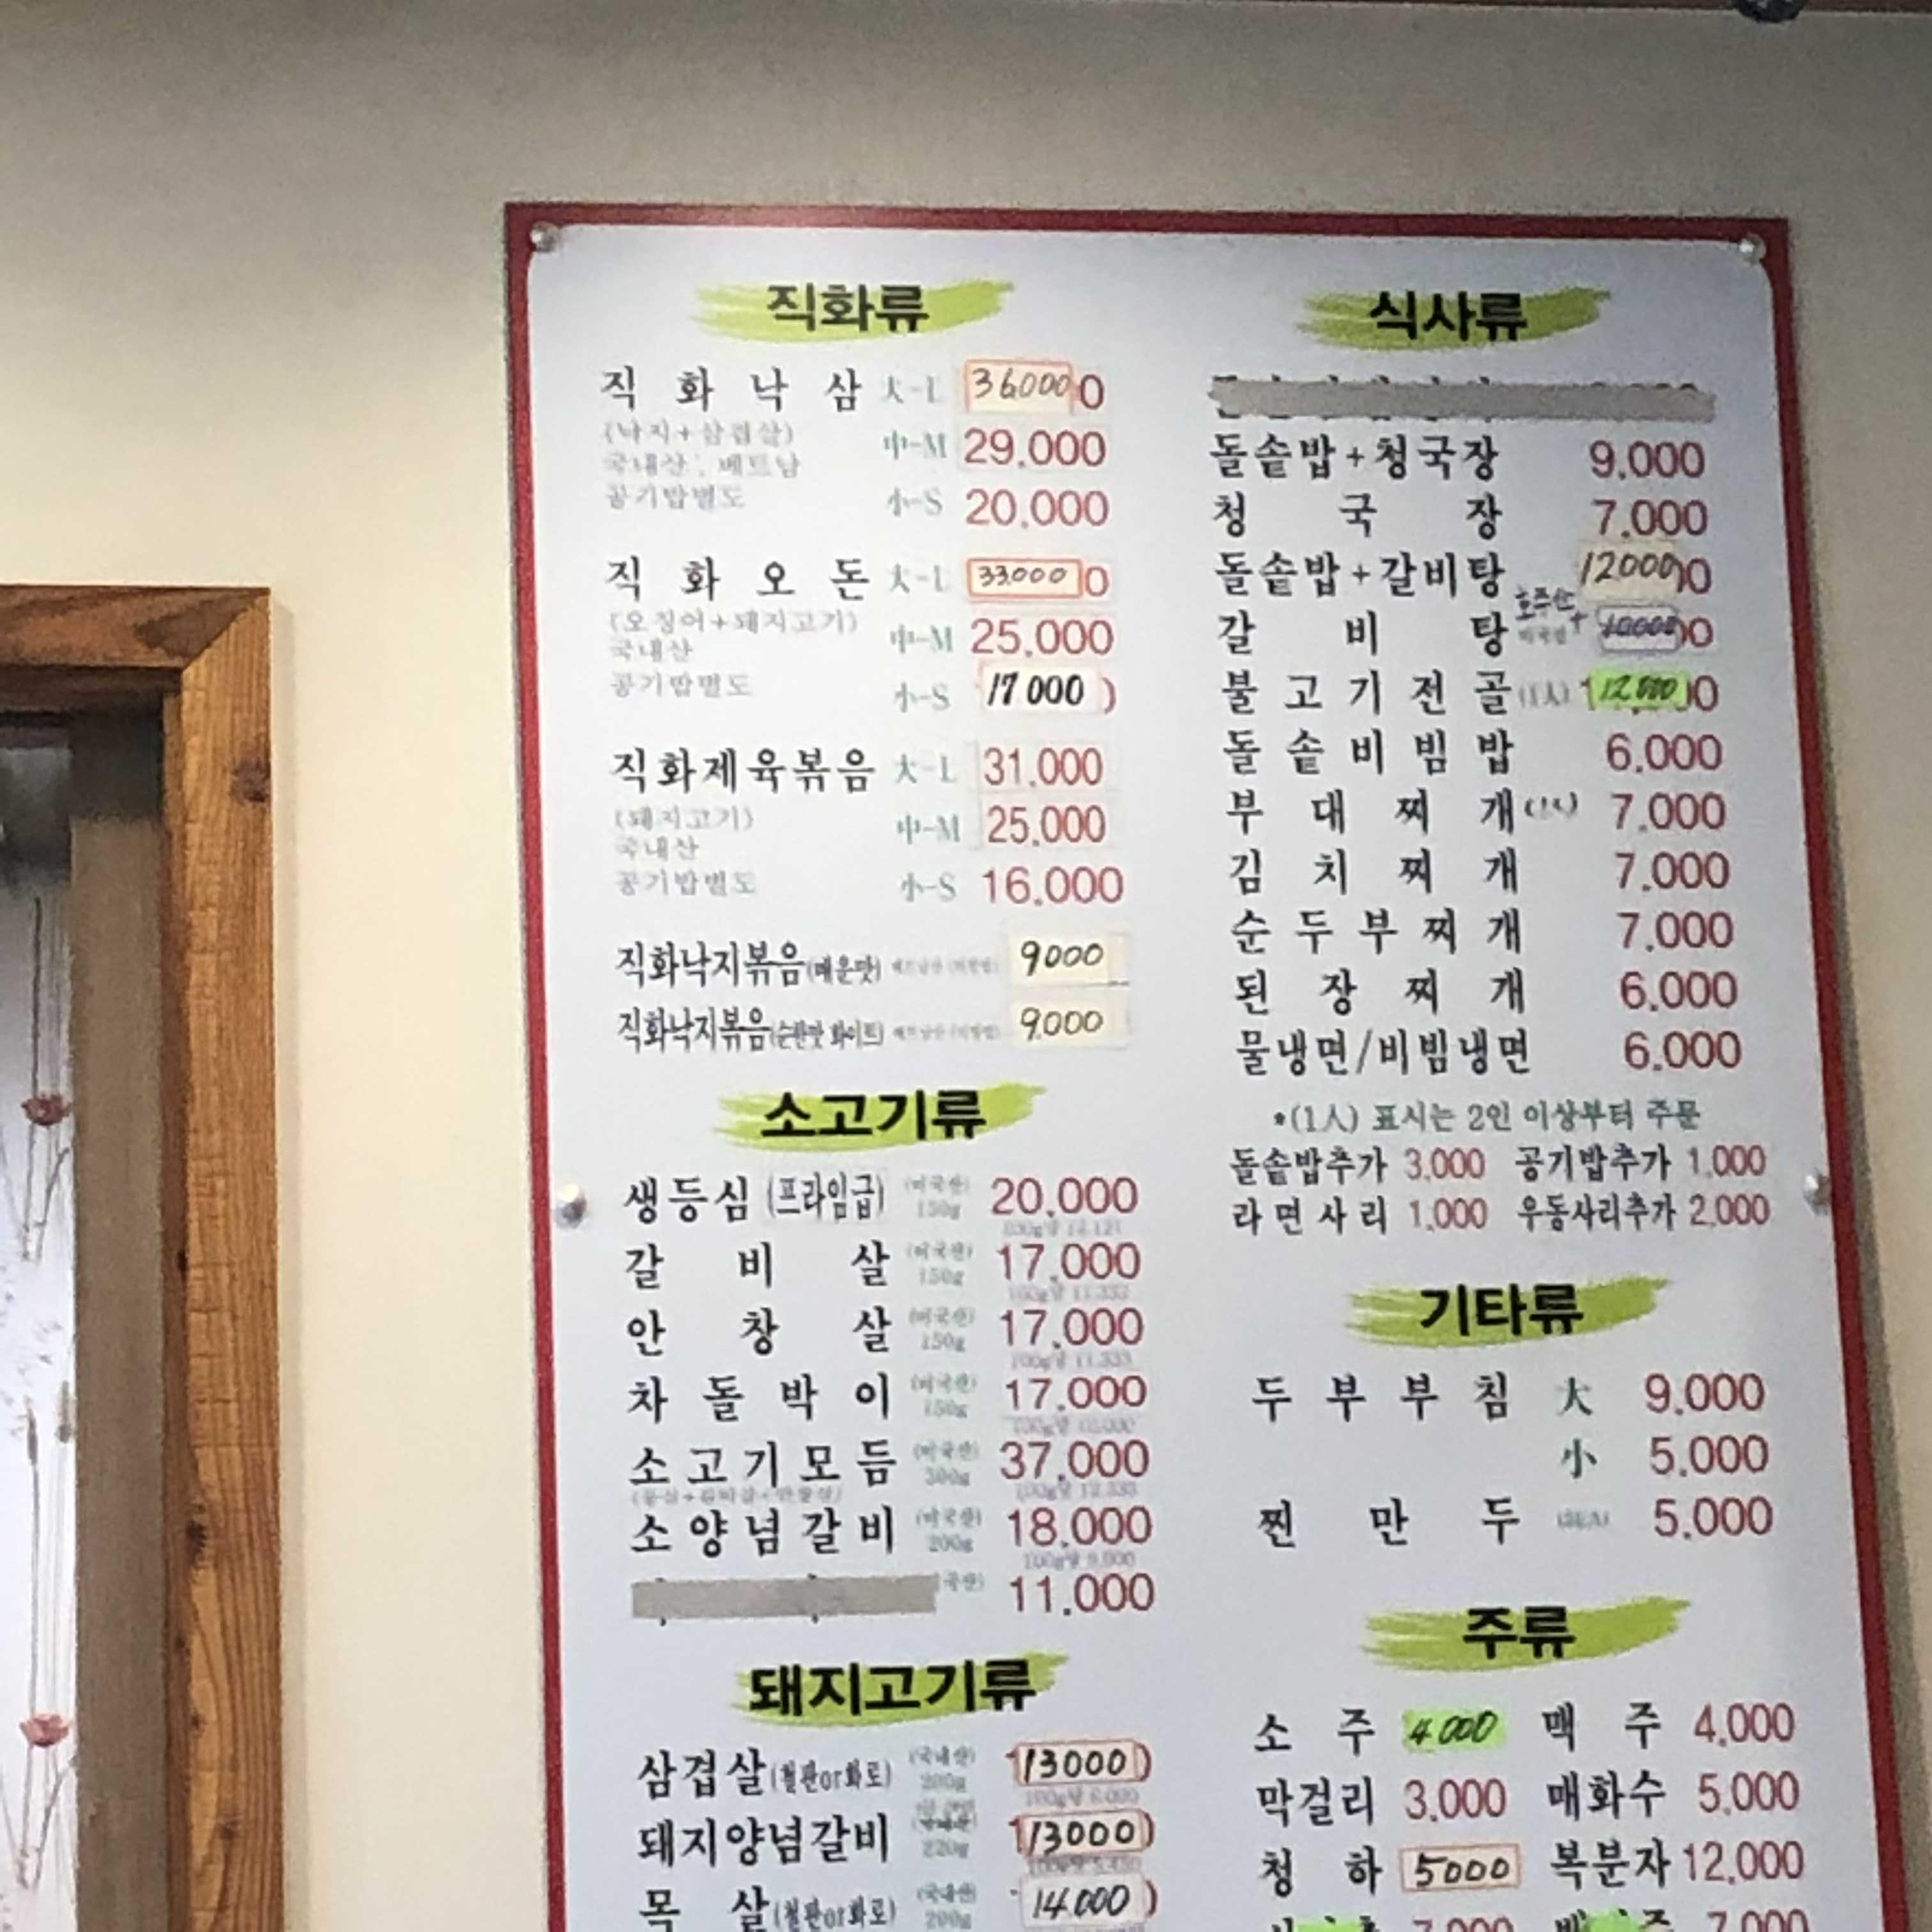 직화류
직화낙삼 大-L 36000
(낙지+삼겹살) 中-M 29.000
국내산, 베트남
공기밥별도 小-S 20.000
직화오돈 大-L 33.000
(오징어+돼지고기) 中-M 25.000
국내산
공기밥별도 小-S 17000
직화제육볶음 大-L 31.000
(돼지고기) 中-M 25.000
국내산
공기밥별도 小-S 16.000
직화낙지볶음(매운맛) 9000
직화낙지볶음(순한맛 화이트) 9.000
소고기류
생등심 (프라임급) (미국산) 150g 20.000
갈비살 (미국산) 150g 17.000
안창살 (미국산) 150g 17.000
차돌박이 (미국산) 150g 17.000
소고기모듬 (미국산) 300g 37.000
소양념갈비 (미국산) 200g 18.000
11.000
돼지고기류
삼겹살(철판or화로) (국내산) 200g 13000
돼지양념갈비 220g 13000
목살(철판or화로) (국내산) 200g 14.000
식사류
돌솥밥+청국장 9.000
청국장 7.000
돌솥밥+갈비탕 12000
갈비탕 호주산+ 미국산 10000
불고기전골(1人) 12.000
돌솥비빔밥 6.000
부대찌개(1人) 7.000
김치찌개 7.000
순두부찌개 7.000
된장찌개 6.000
물냉면/비빔냉면 6.000
*(1人) 표시는 2인 이상부터 주문
돌솥밥추가 3.000 공기밥추가 1.000
라면사리 1.000 우동사리추가 2.000
기타류
두부부침 大 9.000
小 5.000
찐만두 5.000
주류
소주 4.000 맥주 4.000
막걸리 3.000 매화수 5.000
청하 5000 복분자 12.000
7.000 7.000